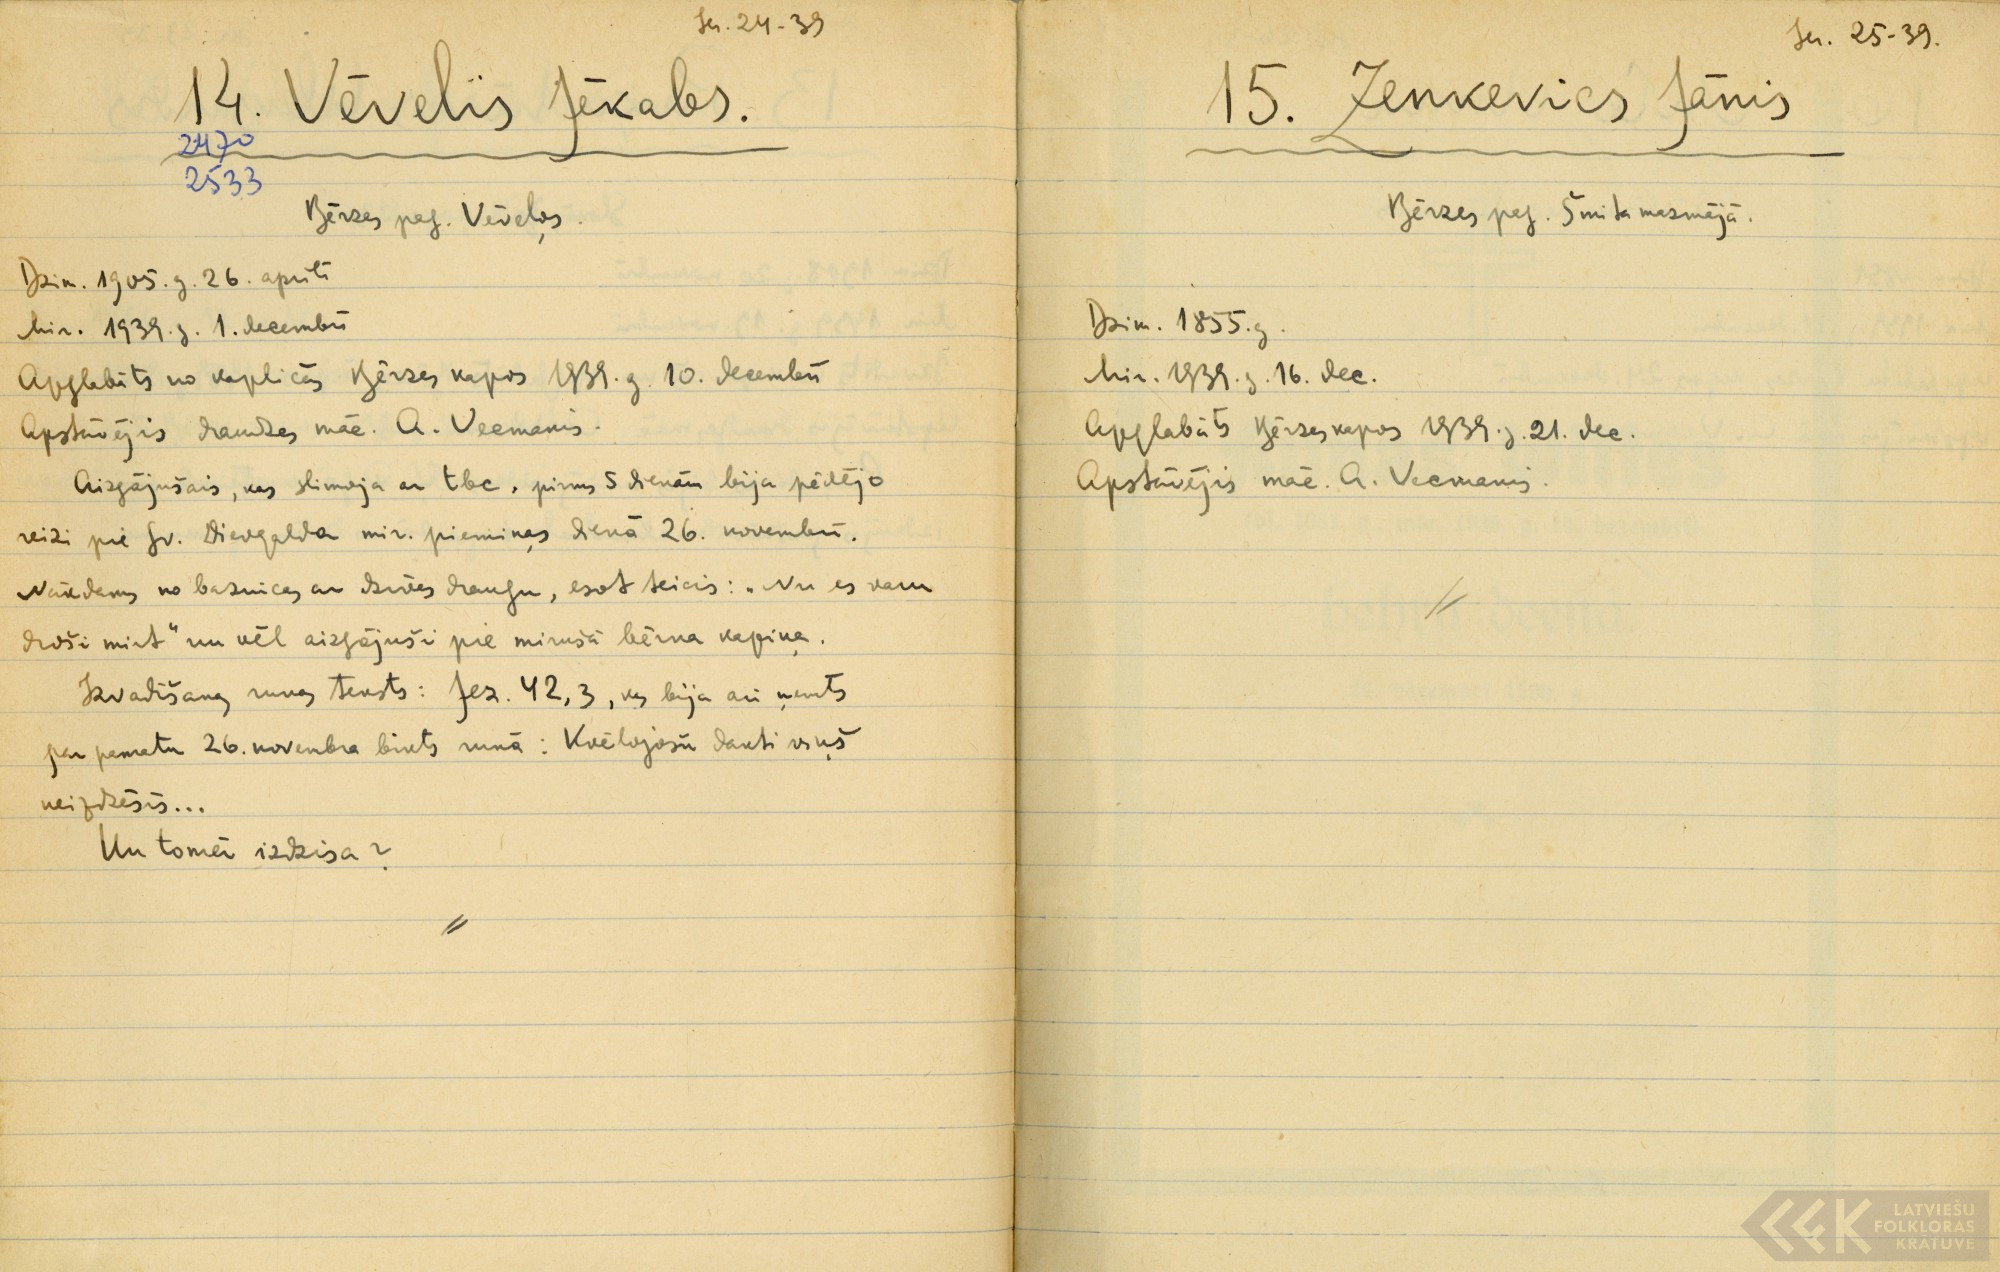 Ier. 24-39
14. Vēvelis Jēkabs.
2470
2533
Bērzes pag. Vēveļos.
Dzim. 1905. g. 26. aprīlī
Mir. 1939. g. 1. decembrī
Apglabāts no kapličas Bērzes kapos 1939. g. 10. decembrī
Apstāvējis draudzes māc. A. Vecmanis.
Aizgājušais, kas slimoja ar tbc, pirms 5 dienām bija pēdējo
reizi pie sv. Dievgalda mir. piemiņas dienā 26. novembrī.
Nākdams no baznīcas ar dzīves draugu, esot teicis: „Nu es varu
droši mirt" un vēl aizgājuši pie mirušā bērna kapiņa.
Izvadīšanas runas teksts: Jez. 42,3, kas bija arī ņemts
par pamatu 26. novembra bikts runā: Kvēlojošu dakti viņš
neizdzēsīs...
Un tomēr izdzisa?
Ier. 25-39.
15. Zenkevics Jānis
Bērzes pag. Šmita mazmājā.
Dzim. 1855. g.
Mir. 1939. g. 16. dec.
Apglabāts Bērzes kapos 1939. g. 21. dec.
Apstāvējis māc. A. Vecmanis.
LATVIEŠU
FOLKLORAS
KRĀTUVE